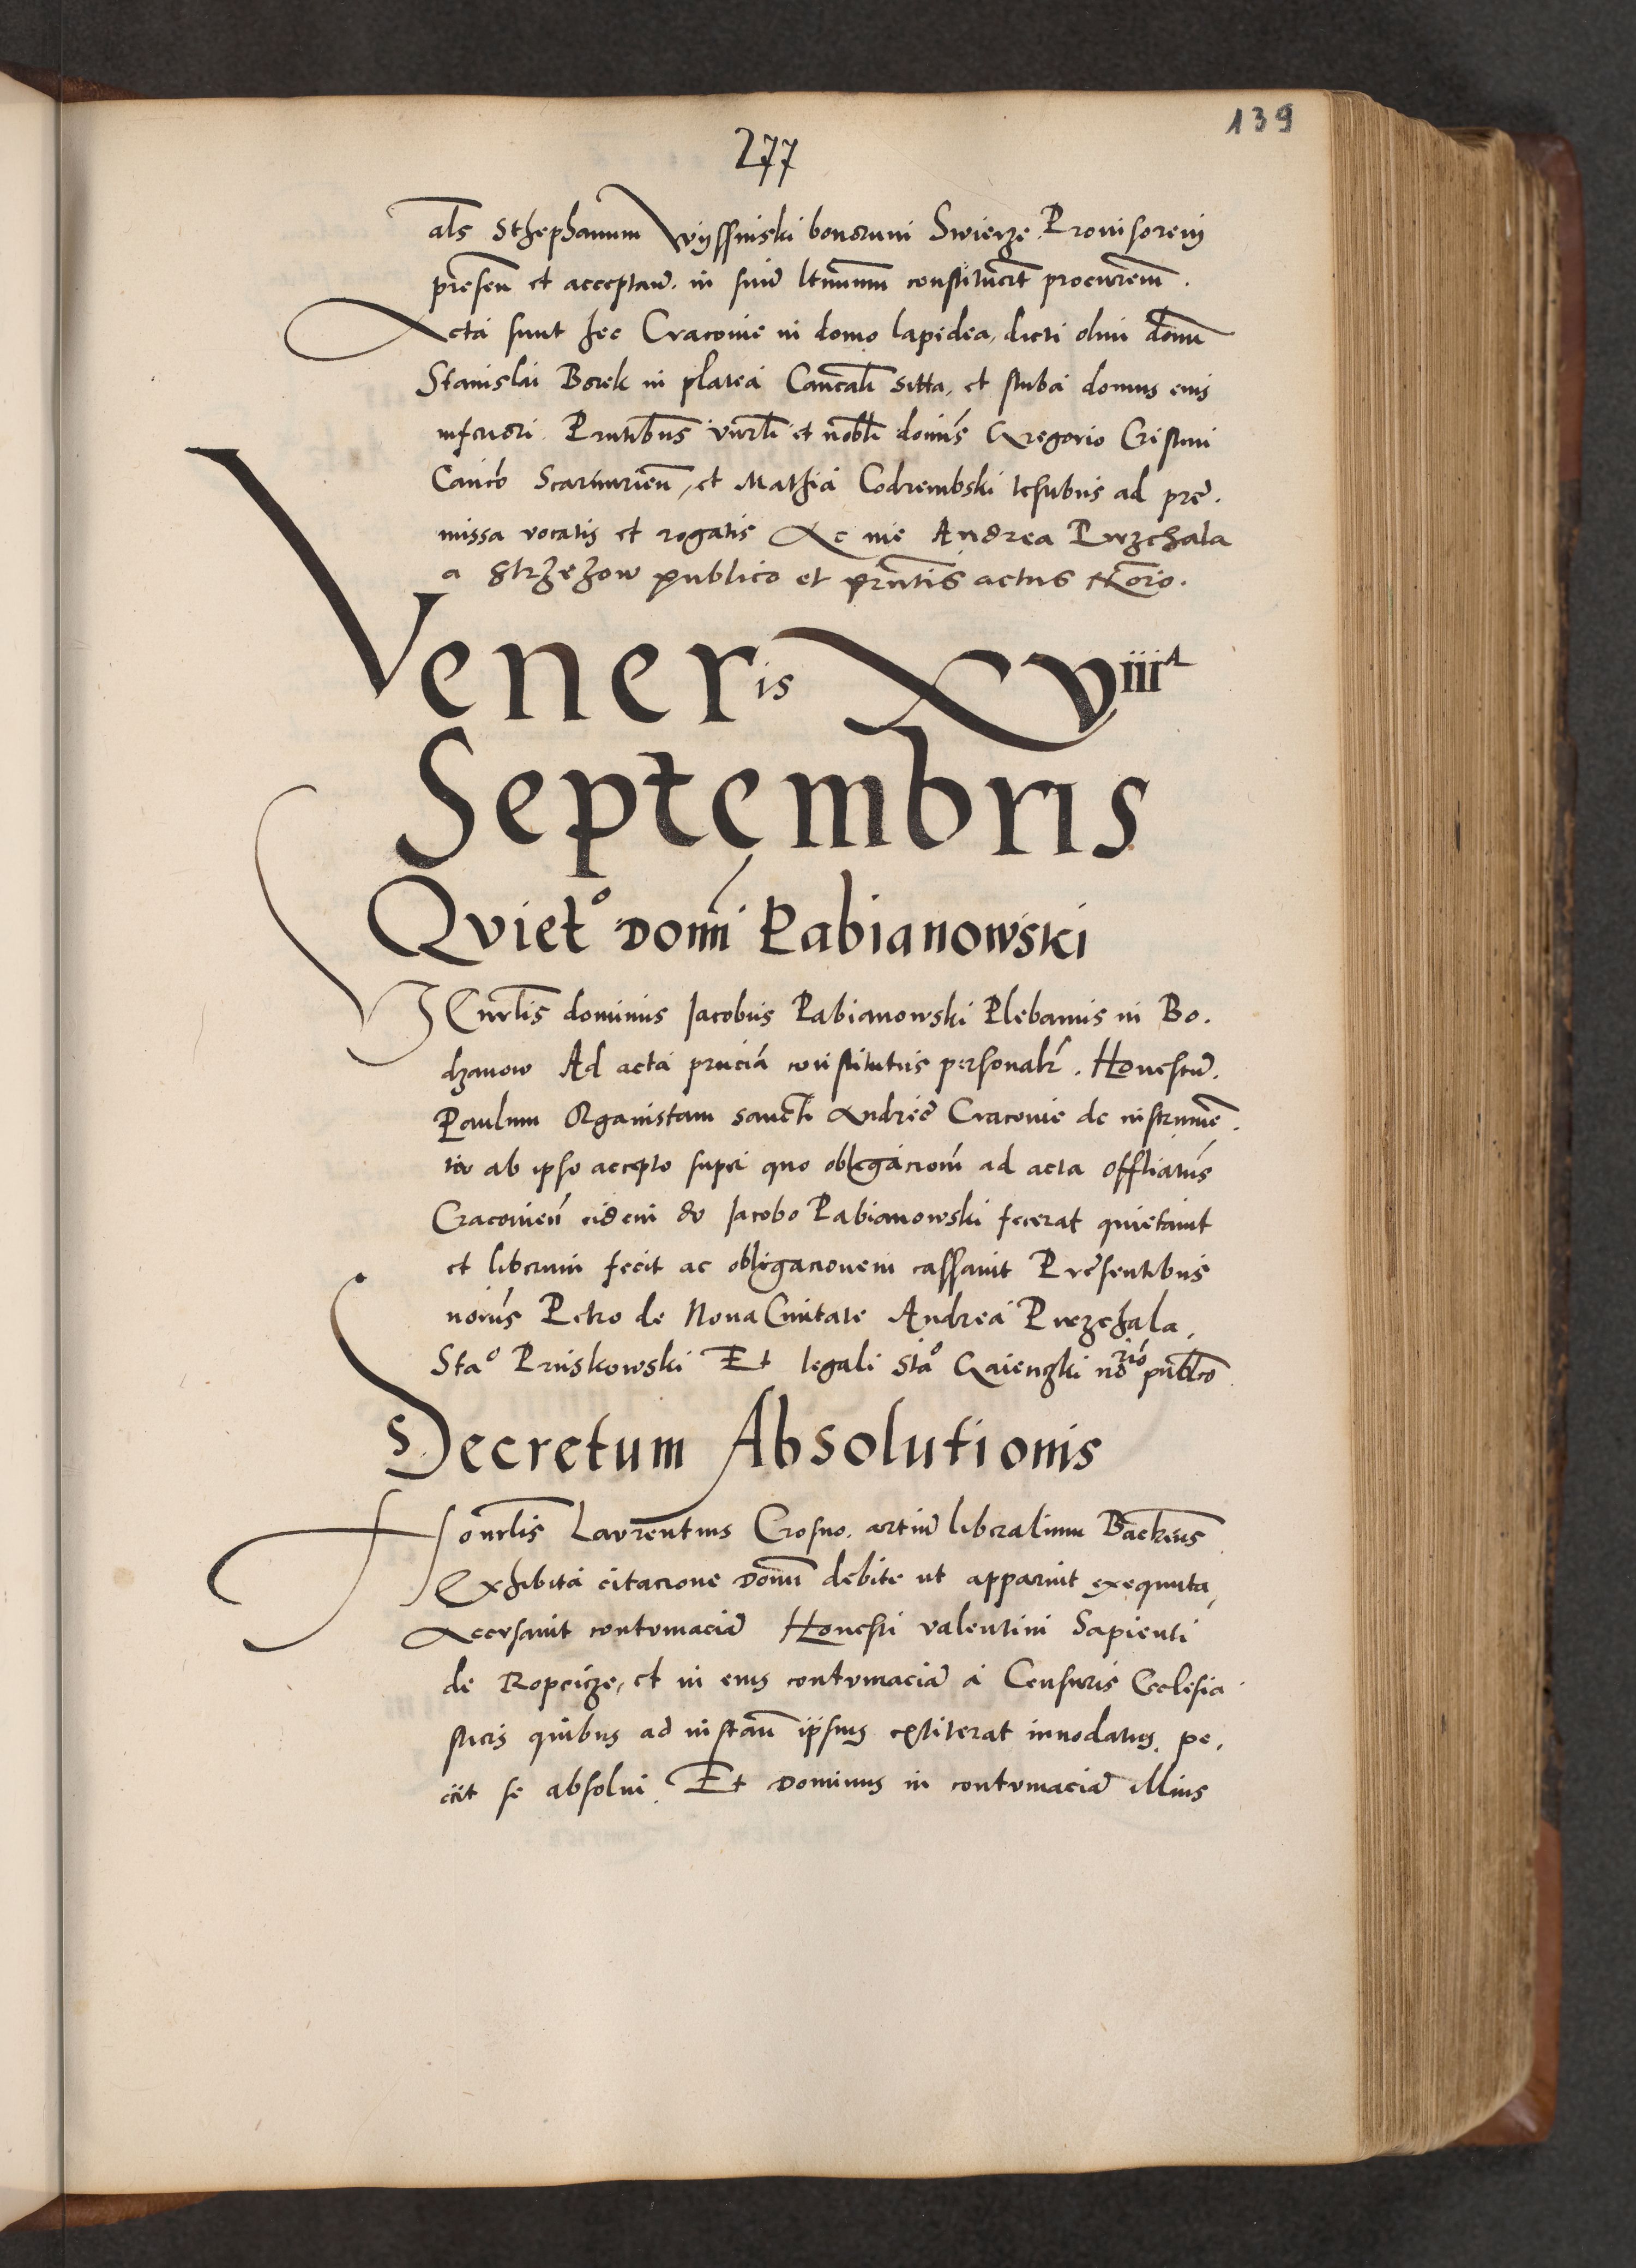 139
277
als Sthephanum Wyssinski bonorum Swierze Prouisorem
presen et acceptan. in suu ltimum constituerit procurem.
Acta sunt hec Cracouie in domo lapidea, dicti olim domi
Stanislai Borek in platea Cancali sitta, et stuba domus eius
inferiori. Pntibus vnrli et nobli domis Gregorio Cristini
Canco Scarmirien, et Mathia Codrembski testibus ad pre.
missa vocatis et rogatis Ac me Andrea Przechala
a Strzezow publico et pntis actus Norio.
Veneris XViiiа
Septembris
Quieto Domi Pabianowski
Vnrlis dominus Jacobus Pabianowski Plebanus in Bo.
dzanow Ad acta pncia constitutus personalr. Honestu.
Paulum Organistam sancti Andree Cracouie de instrume.
to ab ipso accepto super quo obligaciom ad acta Offliatus
Cracouien eidem do Jacobo Pabianowski fecerat quietauit
et liberum fecit ac obligacionem cassauit Presentibus
noriis Petro de Noua Ciuitate Andrea Przechala,
Stao Pruskowski Et legali Stao Gaiengki norio publco
Decretum Absolutionis
Honrlis Laurentius Crosno. artiu liberalium Backeus
Exhibita citacione Domi debite ut apparuit exequuta,
Accusauit contumacia Honesti valentini Sapienti
de Ropcicze, et in eius contumacia a Censuris Ecclesia
sticis quibus ad instan ipsius extiterat innodatus, pe.
ciit se absolui. Et Dominus in contumacia illius